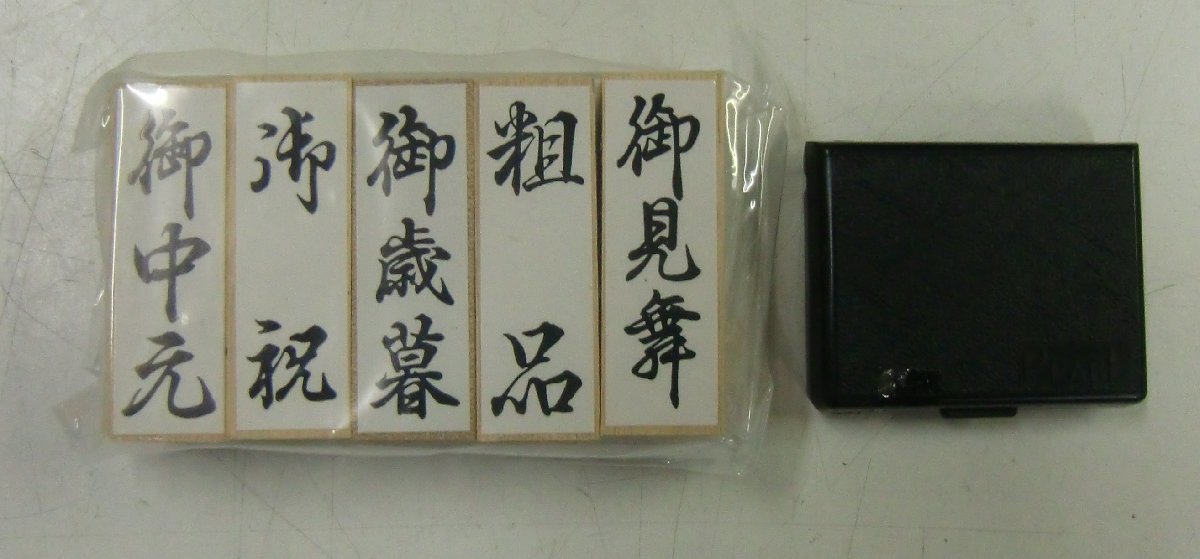 御中元
御祝
御歳暮
粗品
御見舞